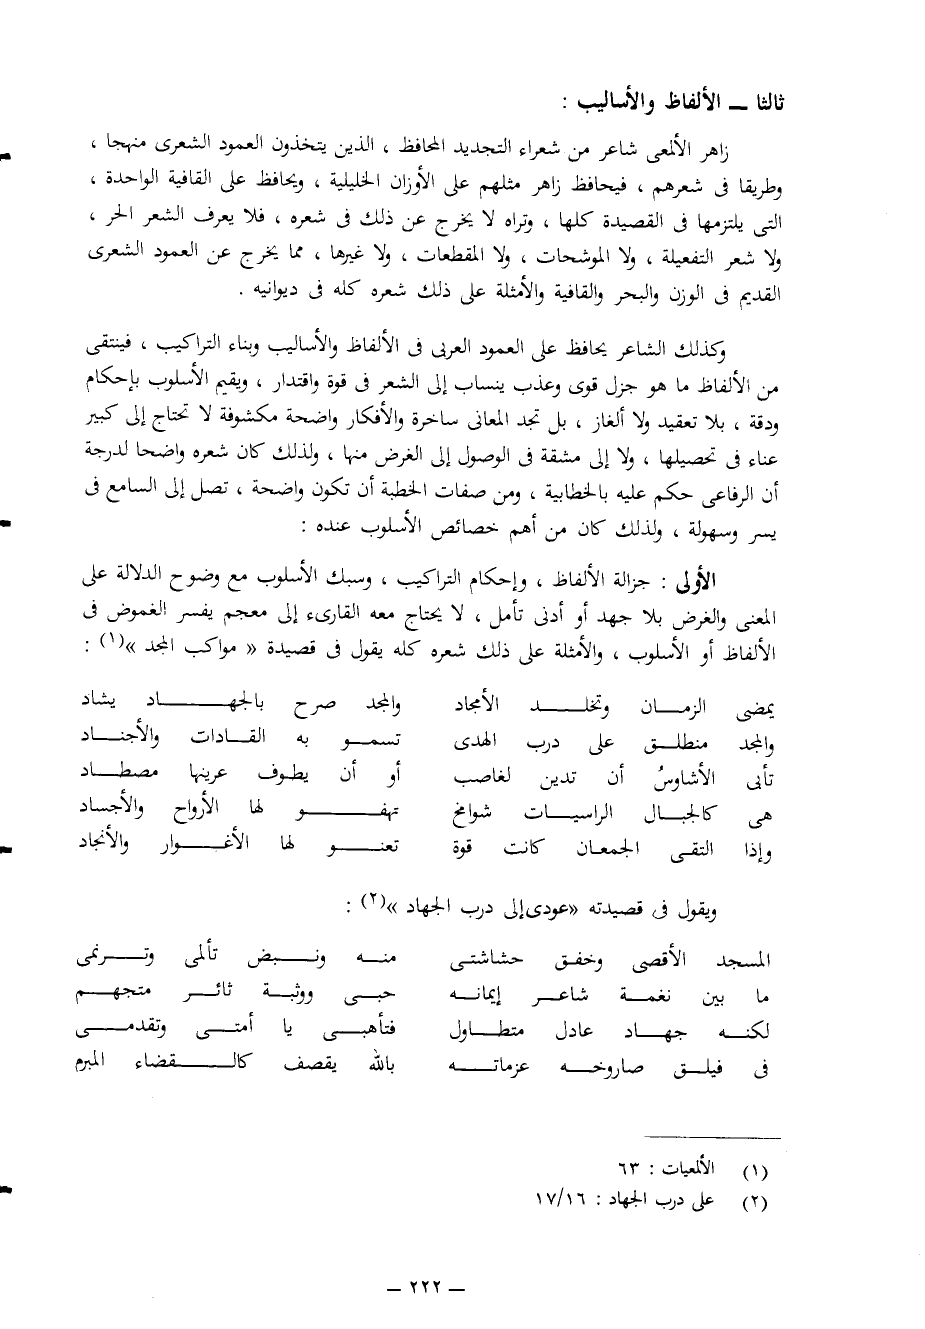 ثالثا ــ الألفاظ والأساليب :
زاهر الألمعى شاعر من شعراء التجديد المحافظ ، الذين يتخذون العمود الشعرى منهجا ،
وطريقا فى شعرهم ، فيحافظ زاهر مثلهم على الأوزان الخليلية ، ويحافظ على القافية الواحدة ،
التى يلتزمها فى القصيدة كلها ، وتراه لا يخرج عن ذلك فى شعره ، فلا يعرف الشعر الحر ،
ولا شعر التفعيلة ، ولا الموشحات ، ولا المقطعات ، ولا غيرها ، مما يخرج عن العمود الشعرى
القديم فى الوزن والبحر والقافية والأمثلة على ذلك شعره كله فى ديوانيه .
وكذلك الشاعر يحافظ على العمود العربى فى الألفاظ والأساليب وبناء التراكيب ، فينتقى
من الألفاظ ما هو جزل قوى وعذب ينساب إلى الشعر فى قوة واقتدار ، ويقيم الأسلوب بإحكام
ودقة ، بلا تعقيد ولا ألغاز ، بل تجد المعانى ساخرة والأفكار واضحة مكشوفة لا تحتاج إلى كبير
عناء فى تحصيلها ، ولا إلى مشقة فى الوصول إلى الغرض منها ، ولذلك كان شعره واضحا لدرجة
أن الرفاعى حكم عليه بالخطابية ، ومن صفات الخطبة أن تكون واضحة ، تصل إلى السامع فى
يسر وسهولة ، ولذلك كان من أهم خصائص الأسلوب عنده :
الأولى : جزالة الألفاظ ، وإحكام التراكيب ، وسبك الأسلوب مع وضوح الدلالة على
المعنى والغرض بلا جهد أو أدنى تأمل ، لا يحتاج معه القارىء إلى معجم يفسر الغموض فى
الألفاظ أو الأسلوب ، والأمثلة على ذلك شعره كله يقول فى قصيدة « مواكب المجد »(١) :
يمضى الزمـــان وتخلـــد الأمجاد والمجد صرح بالجهـــاد يشاد
والمجد منطلـــق على درب الهدى تسمـــو به القـــادات والأجنـــاد
تأبى الأشاوسُ أن تدين لغاصب أو أن يطـوف عرينها مصطـــاد
هى كالجبـــال الراسيـــات شوامخ تهفـــو لها الأرواح والأجساد
وإذا التقـــى الجمعـــان كانت قوة تعنـــو لها الأغـــوار والأنجاد
ويقول فى قصيدته «عودى إلى درب الجهاد »(٢) :
المسجد الأقصى وخفـــق حشاشتـى منـــه ونـــبض تألمى وتـــرنمى
ما بين نغمـــة شاعـــر إيمانـــه حبـــى ووثبـــة ثائـــر متجهـــم
لكنـــه جهـــاد عادل متطـــاول فتأهبـــى يا أمتـــى وتقدمـــى
فى فيلـــق صاروخـــه عزماتـــه بالله يقصف كالـــقضاء المبرم
(١) الألمعيات : ٦٣
(٢) على درب الجهاد : ١٧/١٦
ــ ٢٢٢ ــ